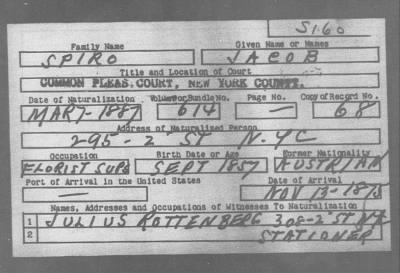 S160
Family Name Given Name or Names
SPIRO JACOB
Title and Location of Court
COMMON PLEAS COURT, NEW YORK COUNTY.
Date of Naturalization Volume or Bundle No. Page No. Copy of Record No.
MAR 7-1887 614 — 68
Address of Naturalized Person
295-2 ST N.Y.C
Occupation Birth Date or Age Former Nationality
FLORIST SUPS SEPT 1857 AUSTRIAN
Port of Arrival in the United States Date of Arrival
NOV 13-1875
Names, Addresses and Occupations of Witnesses To Naturalization
1 JULIUS ROTTENBERG 308-2" ST NY
2 STATIONER